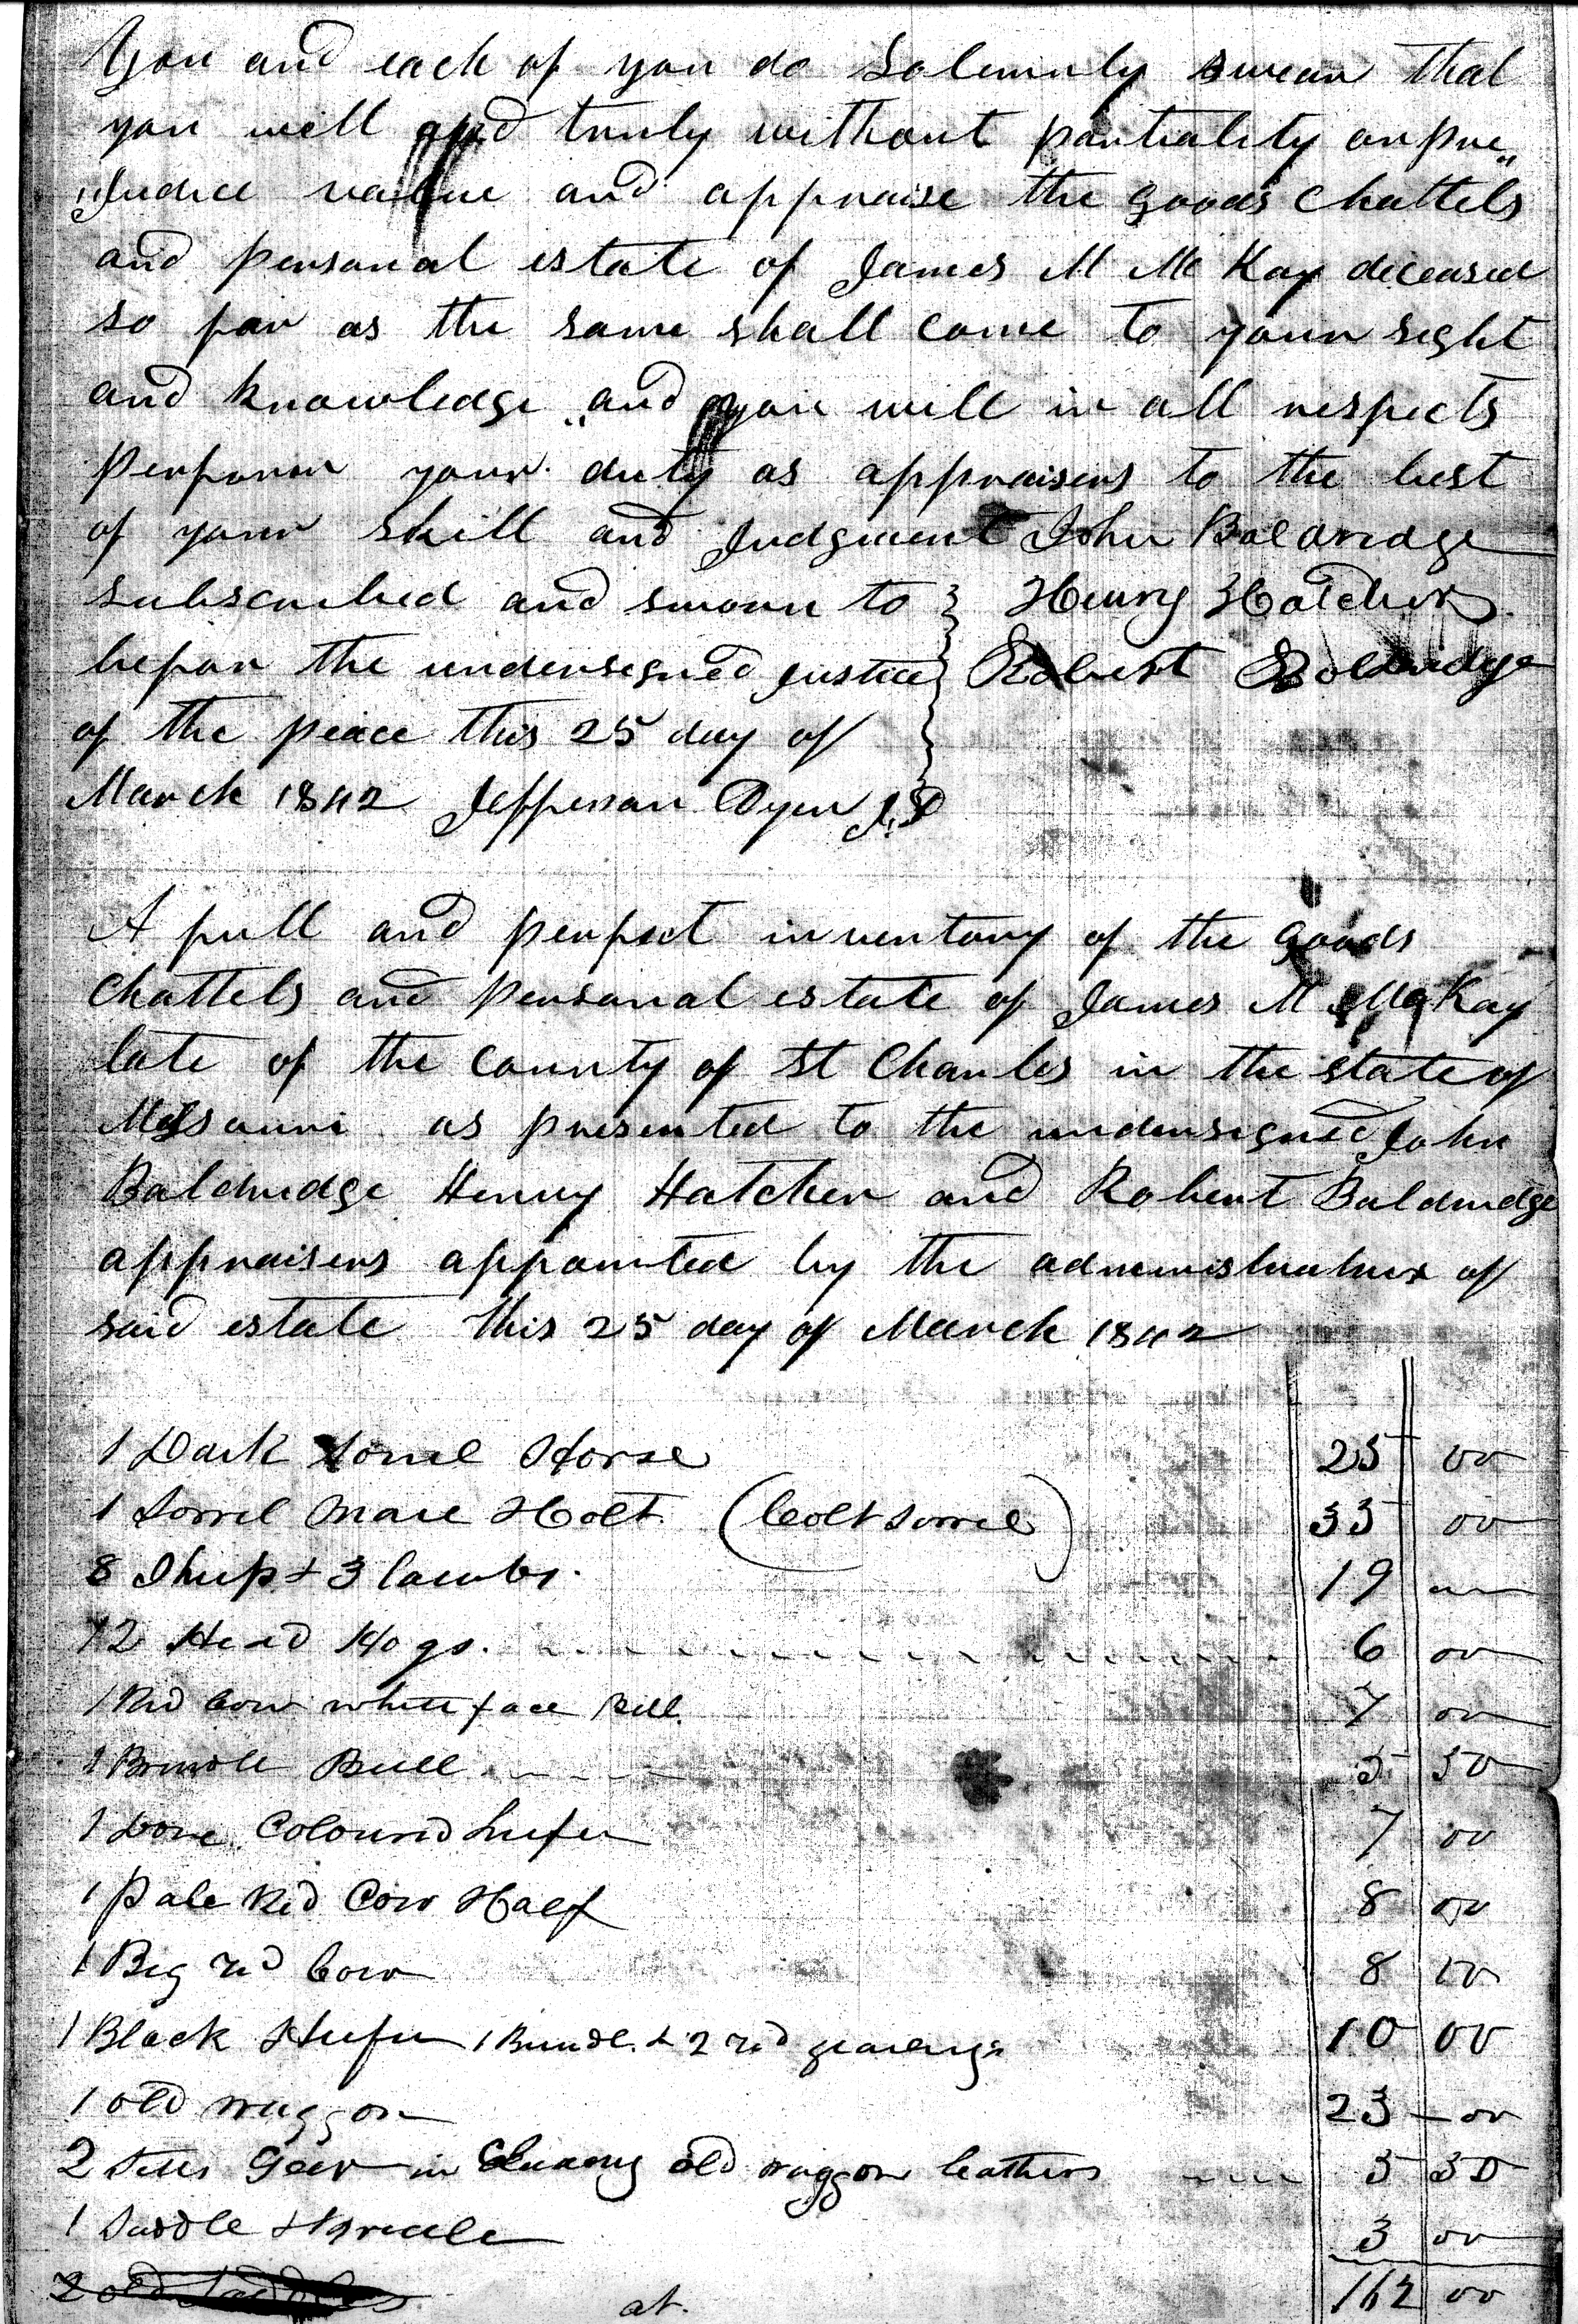 You and each of you do Solemnly swear that
you will and truly without partiality or pre„
„Judice value and appraise the goods Chattels
and personal estate of James M Mc Kay deceased
so far as the same shall come to your sight
and knowledge „ and you will in all respects
perform your duty as appraisers to the best
of your skill and Judgment John Baldridge
subscribed and sworn to Henry Hatcher
before the undersigned Justice Robert Baldridge
of the peace this 25 day of
March 1842 Jefferson Dyer J.P
A full and perfect inventory of the goods
Chattels and personal estate of James M McKay
late of the County of St Charles in the state of
Missouri as presented to the undersigned John
Baldridge Henry Hatcher and Robert Baldridge
appraisers appointed by the administratrix of
said estate this 25 day of March 1842
1 Dark Sorrel Horse 25 00
1 Sorrel Mare & Colt (Colt Sorrel) 35 00
8 Sheep & 3 lambs. 19
12 Head Hogs. 6 00
1 Red Cow white face Bell. 7 00
1 Brindle Bull 5 50
1 Dove Coloured heifer 7 00
1 Pale Red Cow & Calf 8 00
1 Big red Cow 8 00
1 Black Heifer 1 Brindle & 2 red yearlings 10 00
1 old waggon 23 00
2 Setts Gear in old waggon leathers 5 50
1 Saddle & Bridle 3 00
2 old Saddles at. 162 00